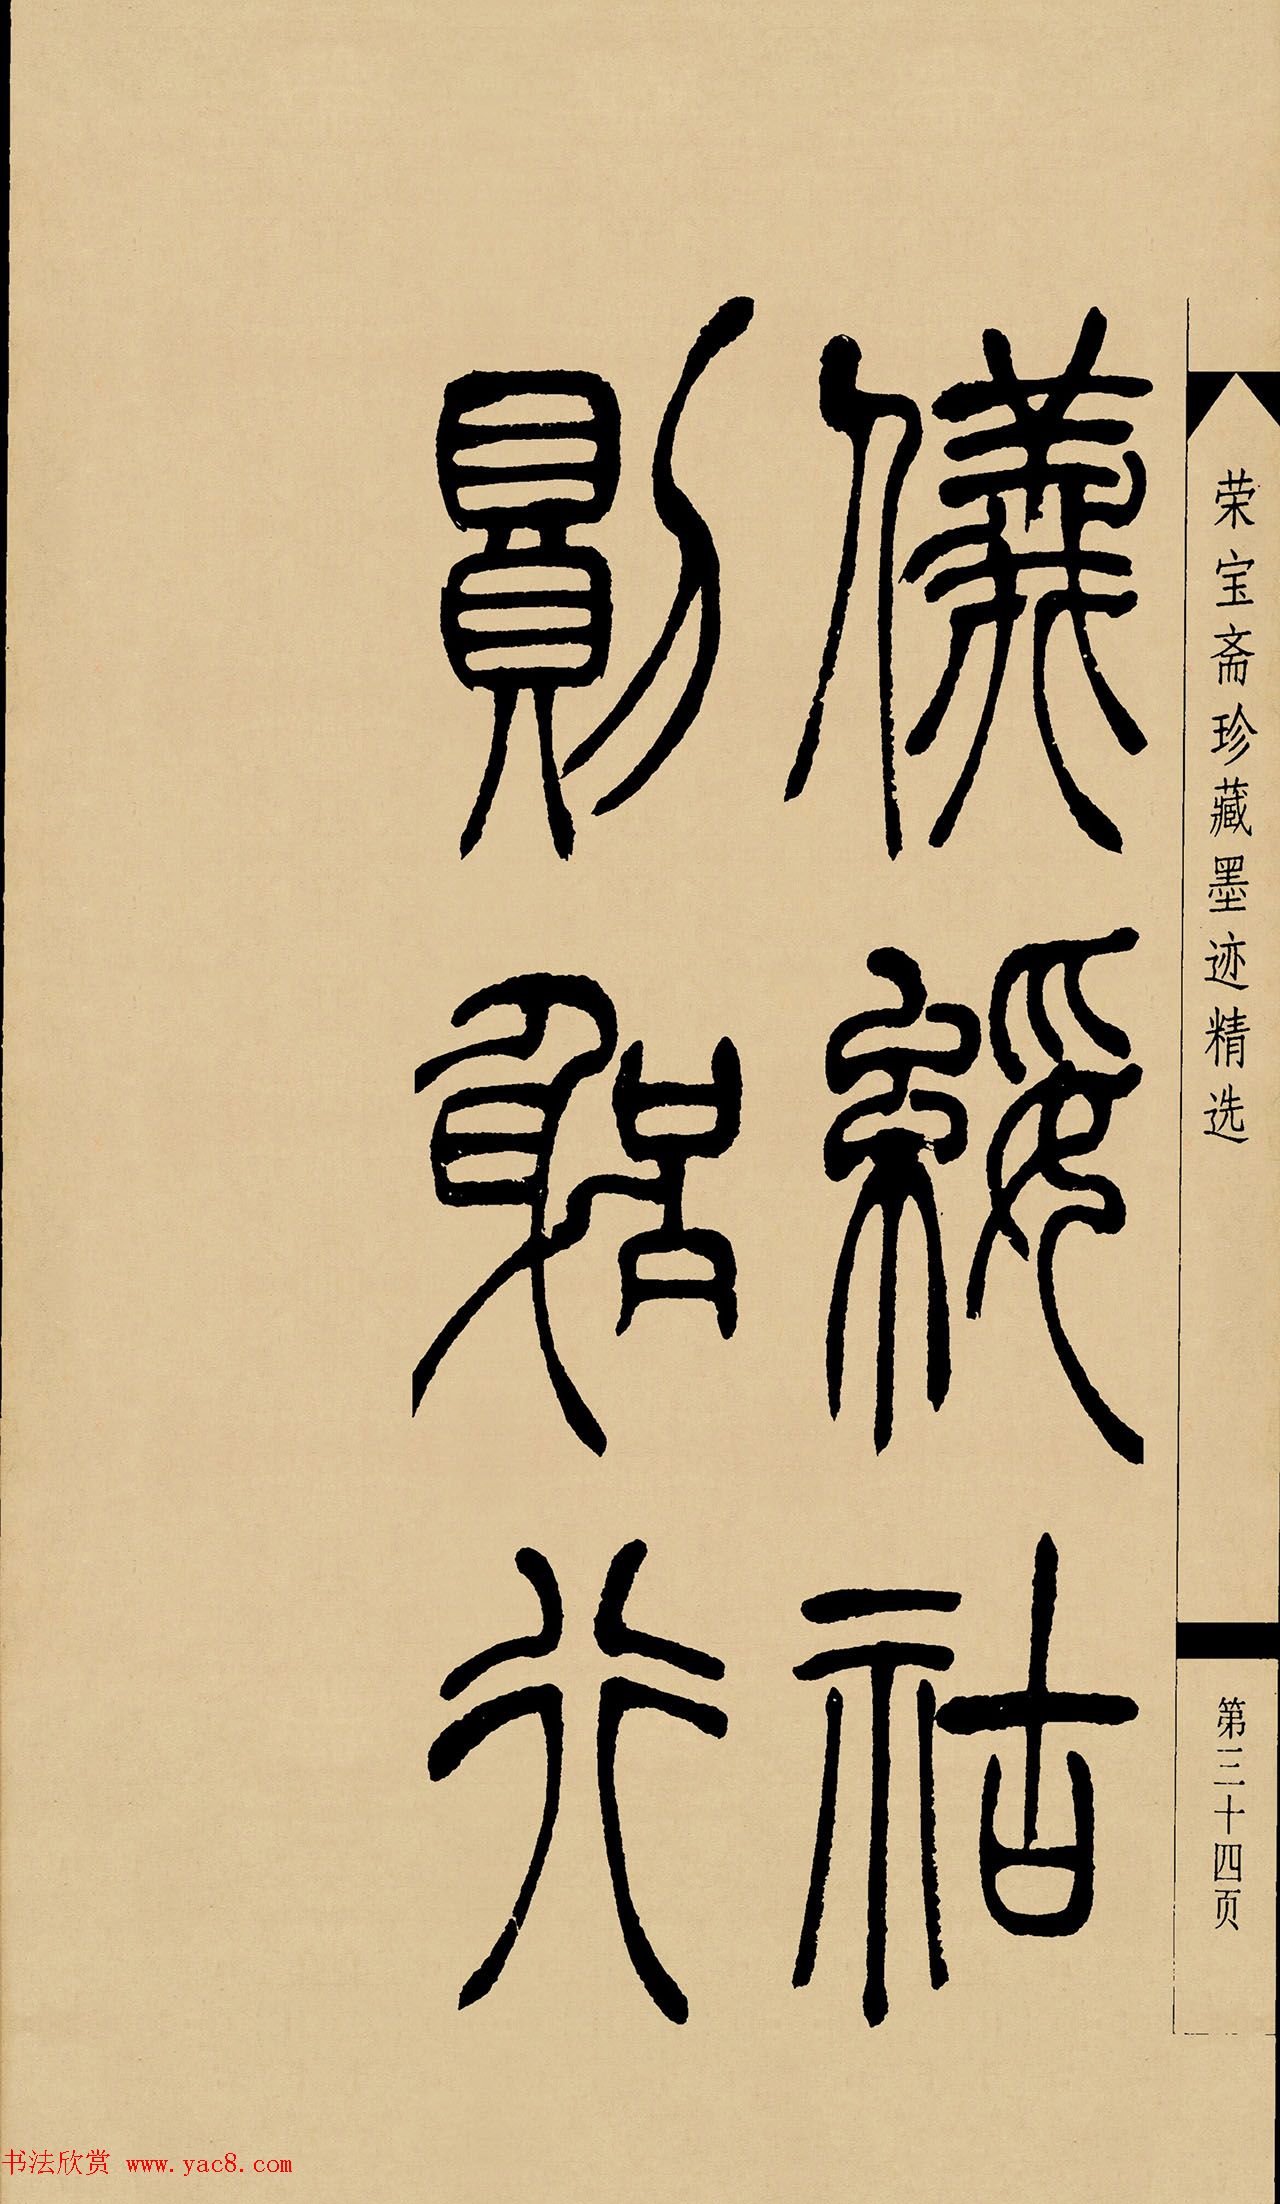 荣宝斋珍藏墨迹精选
第三十四页
儀綏祜
則敢行
书法欣赏 www.yac8.com